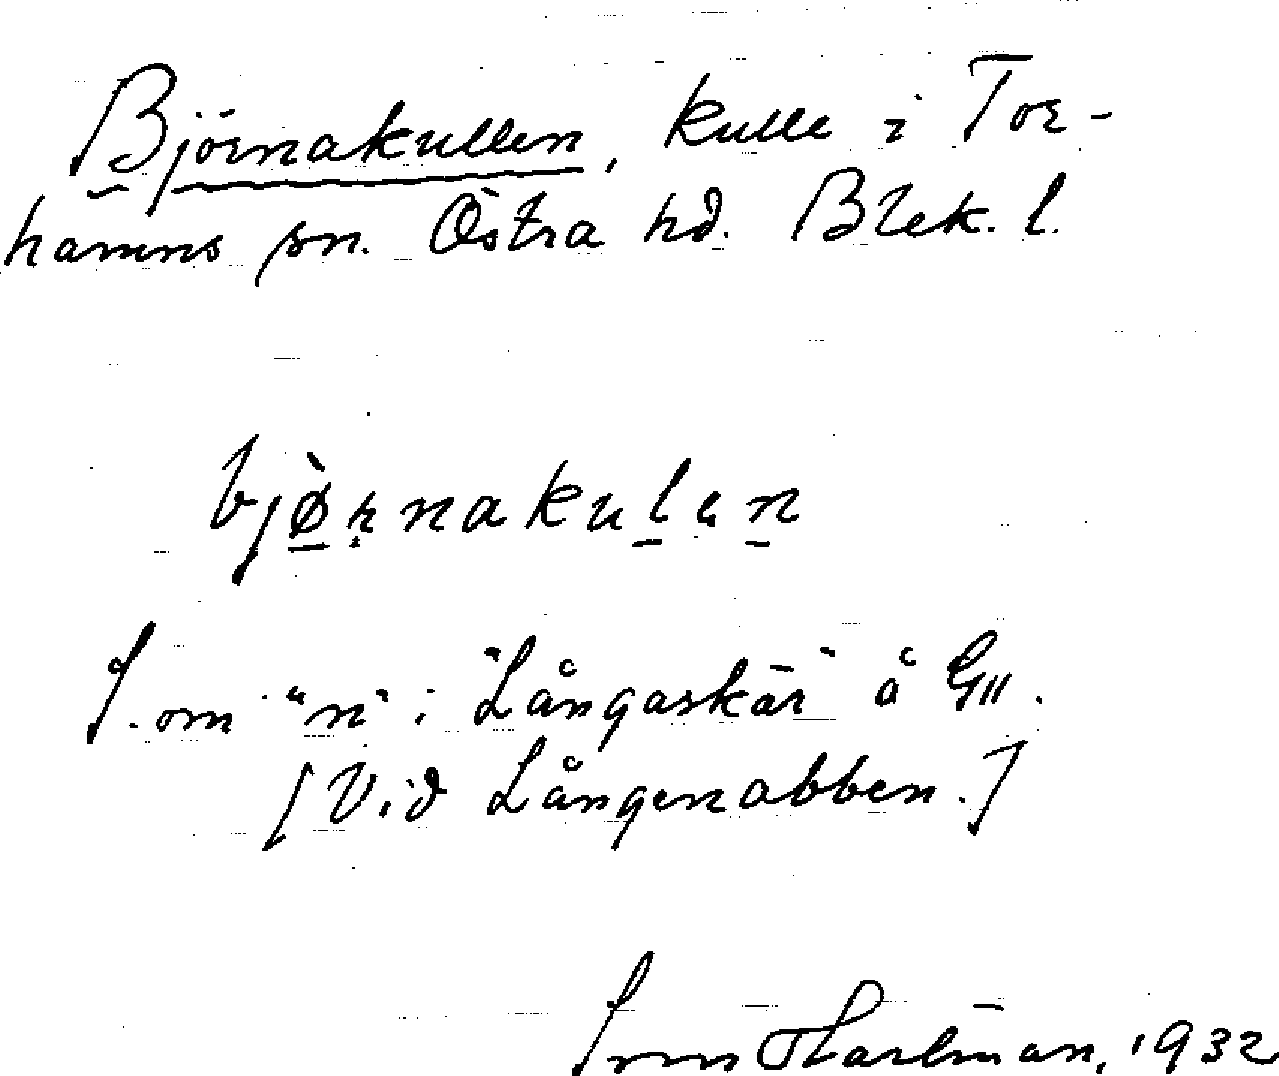 Björnakullen, kulle i Tor-
hamns sn. Östra hd. Blek. l.
bjø̀rnakulen
S. om "n" i "Långaskär" å G11.
[Vid Långenabben.]
Hartman, 1932